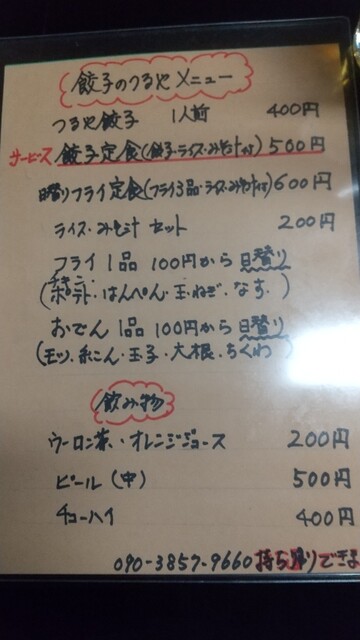 餃子のつるやメニュー
つるや餃子 1人前 400円
サービス 餃子定食(餃子・ライス・みそ汁付) 500円
日替りフライ定食(フライ3品・ライス・みそ汁付) 600円
ライス・みそ汁 セット 200円
フライ 1品 100円から 日替り
・はんぺん・玉ねぎ・なす.)
おでん 1品 100円から 日替り
(モツ・糸こん・玉子・大根・ちくわ)
飲み物
ウーロン茶・オレンジジュース 200円
ビール(中) 500円
チューハイ 400円
090-3857-9660 持ち帰りできま